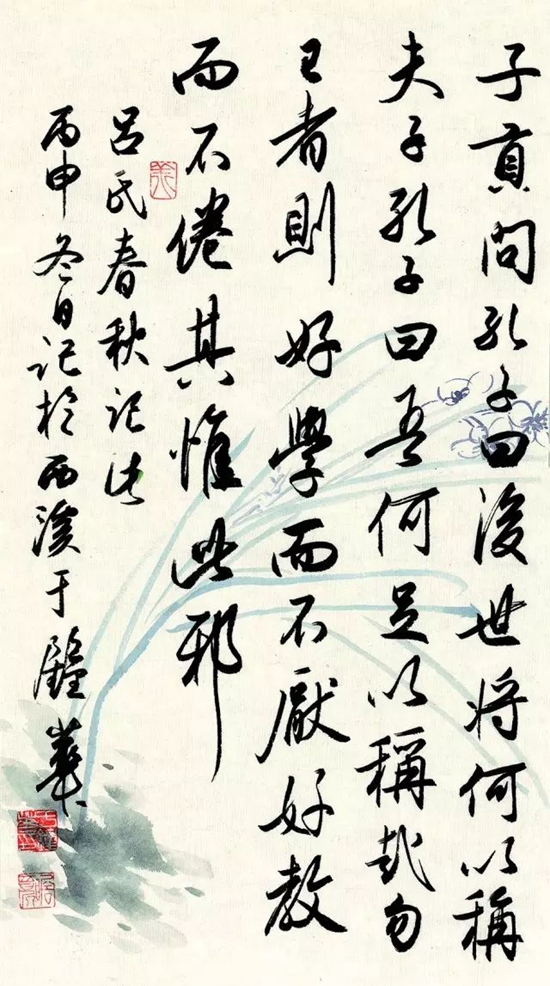 子貢問孔子曰後世將何以稱
夫子孔子曰吾何足以稱哉勿
已者則好學而不厭好教
而不倦其惟此邪
呂氏春秋記此
丙申冬日記於西溪于鍾華